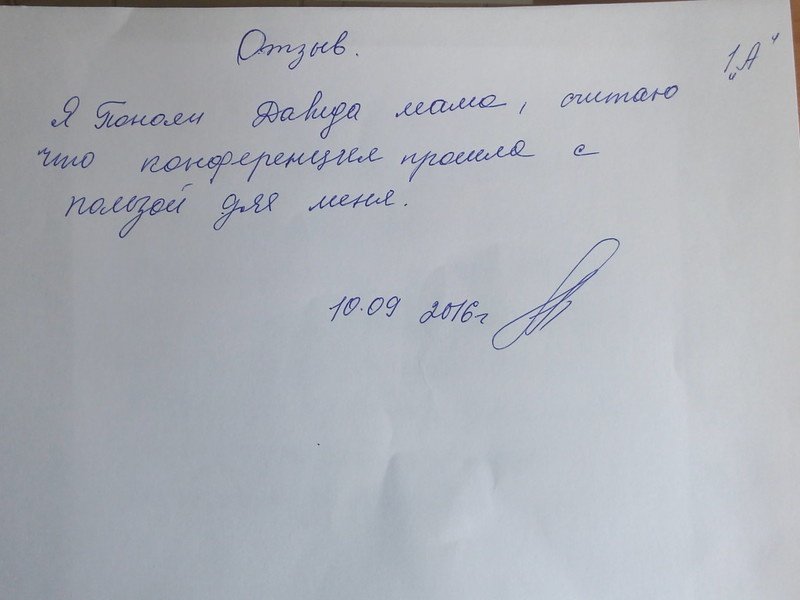 Отзыв.
1 „А“
Я Поноли Давида мама, считаю
что конференция прошла с
пользой для меня.
10.09 2016г